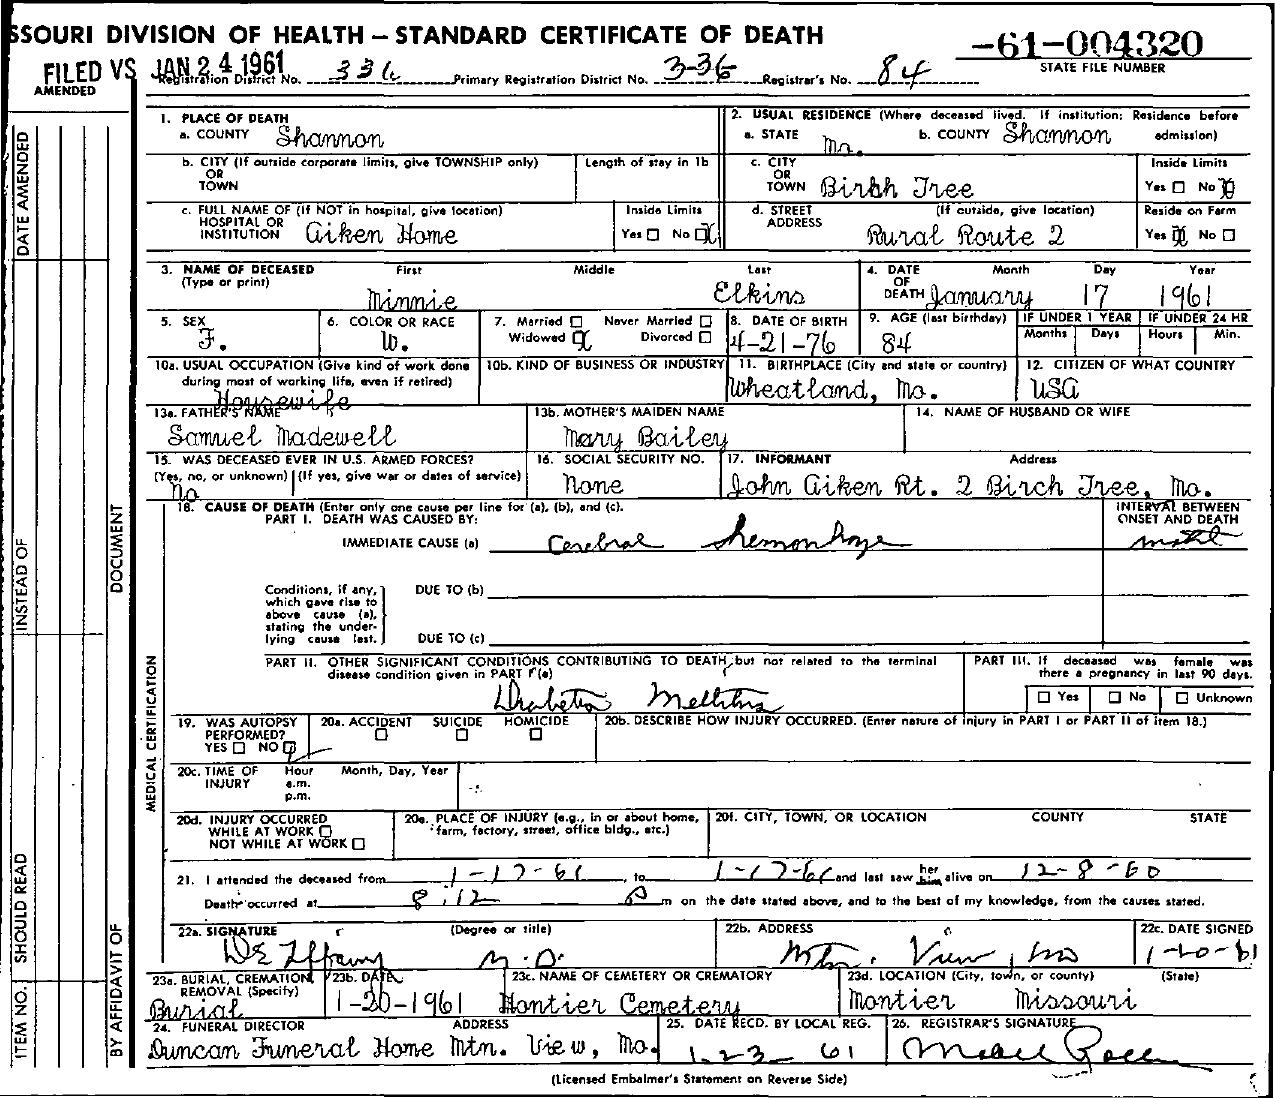 SSOURI DIVISION OF HEALTH – STANDARD CERTIFICATE OF DEATH
-61-004320
STATE FILE NUMBER
FILED VS JAN 24 1961
AMENDED
Registration District No. 336 Primary Registration District No. 3-36 Registrar's No. 84
1. PLACE OF DEATH
a. COUNTY Shannon
2. USUAL RESIDENCE (Where deceased lived. If institution: Residence before admission)
a. STATE Mo. b. COUNTY Shannon
b. CITY (If outside corporate limits, give TOWNSHIP only)
OR
TOWN
Length of stay in 1b
c. CITY
OR
TOWN Birch Tree
Inside Limits
Yes ☐ No ☒
c. FULL NAME OF (If NOT in hospital, give location)
HOSPITAL OR
INSTITUTION Aiken Home
Inside Limits
Yes ☐ No ☒
d. STREET (If outside, give location)
ADDRESS Rural Route 2
Reside on Farm
Yes ☒ No ☐
3. NAME OF DECEASED First Middle Last
(Type or print)
Minnie Elkins
4. DATE Month Day Year
OF
DEATH January 17 1961
5. SEX
F.
6. COLOR OR RACE
W.
7. Married ☐ Never Married ☐
Widowed ☒ Divorced ☐
8. DATE OF BIRTH
4-21-76
9. AGE (last birthday)
84
IF UNDER 1 YEAR IF UNDER 24 HR
Months Days Hours Min.
10a. USUAL OCCUPATION (Give kind of work done
during most of working life, even if retired)
Housewife
10b. KIND OF BUSINESS OR INDUSTRY
11. BIRTHPLACE (City and state or country)
Wheatland, Mo.
12. CITIZEN OF WHAT COUNTRY
USA
13a. FATHER'S NAME
Samuel Madewell
13b. MOTHER'S MAIDEN NAME
Mary Bailey
14. NAME OF HUSBAND OR WIFE
15. WAS DECEASED EVER IN U.S. ARMED FORCES?
(Yes, no, or unknown) (If yes, give war or dates of service)
No
16. SOCIAL SECURITY NO.
None
17. INFORMANT Address
John Aiken Rt. 2 Birch Tree, Mo.
18. CAUSE OF DEATH (Enter only one cause per line for (a), (b), and (c).
PART I. DEATH WAS CAUSED BY:
INTERVAL BETWEEN
ONSET AND DEATH
IMMEDIATE CAUSE (a) Cerebral Hemorrhage
Conditions, if any,
which gave rise to
above cause (a),
stating the under-
lying cause last.
DUE TO (b)
DUE TO (c)
PART II. OTHER SIGNIFICANT CONDITIONS CONTRIBUTING TO DEATH but not related to the terminal
disease condition given in PART I (a)
Diabetes Mellitus
PART III. If deceased was female was
there a pregnancy in last 90 days.
☐ Yes ☐ No ☐ Unknown
19. WAS AUTOPSY
PERFORMED?
YES ☐ NO ☑
20a. ACCIDENT SUICIDE HOMICIDE
☐ ☐ ☐
20b. DESCRIBE HOW INJURY OCCURRED. (Enter nature of injury in PART I or PART II of item 18.)
20c. TIME OF INJURY Hour Month, Day, Year
a.m.
p.m.
20d. INJURY OCCURRED
WHILE AT WORK ☐
NOT WHILE AT WORK ☐
20e. PLACE OF INJURY (e.g., in or about home,
farm, factory, street, office bldg., etc.)
20f. CITY, TOWN, OR LOCATION COUNTY STATE
21. I attended the deceased from 1-17-61, to 1-17-61 and last saw her him alive on 12-8-60
Death occurred at 8:12 P m on the date stated above, and to the best of my knowledge, from the causes stated.
22a. SIGNATURE (Degree or title)
M.D.
22b. ADDRESS
Mtn. View, Mo
22c. DATE SIGNED
1-20-61
23a. BURIAL, CREMATION,
REMOVAL (Specify)
Burial
23b. DATE
1-20-1961
23c. NAME OF CEMETERY OR CREMATORY
Montier Cemetery
23d. LOCATION (City, town, or county) (State)
Montier Missouri
24. FUNERAL DIRECTOR ADDRESS
Duncan Funeral Home Mtn. View, Mo.
25. DATE RECD. BY LOCAL REG.
1-23-61
26. REGISTRAR'S SIGNATURE
Mabel
(Licensed Embalmer's Statement on Reverse Side)
DATE AMENDED
INSTEAD OF
DOCUMENT
MEDICAL CERTIFICATION
SHOULD READ
ITEM NO.
BY AFFIDAVIT OF